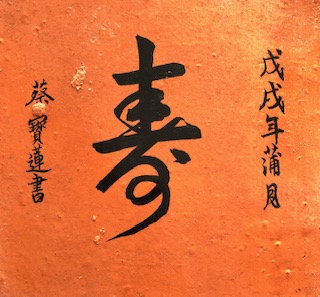 戊戌年蒲月
寿
蔡寶蓮書